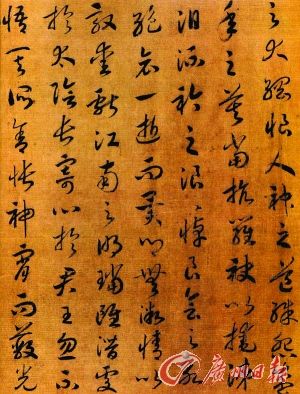 之大綱恨人神之道殊怨盛
年之莫當抗羅袂以掩涕
淚流衿之浪〻悼良會之永
絕哀一逝而異鄉無微情以
效愛獻江南之明璫雖潛處
於太陰長寄心於君王忽不
悟其所舍悵神宵而蔽光
廣州日報